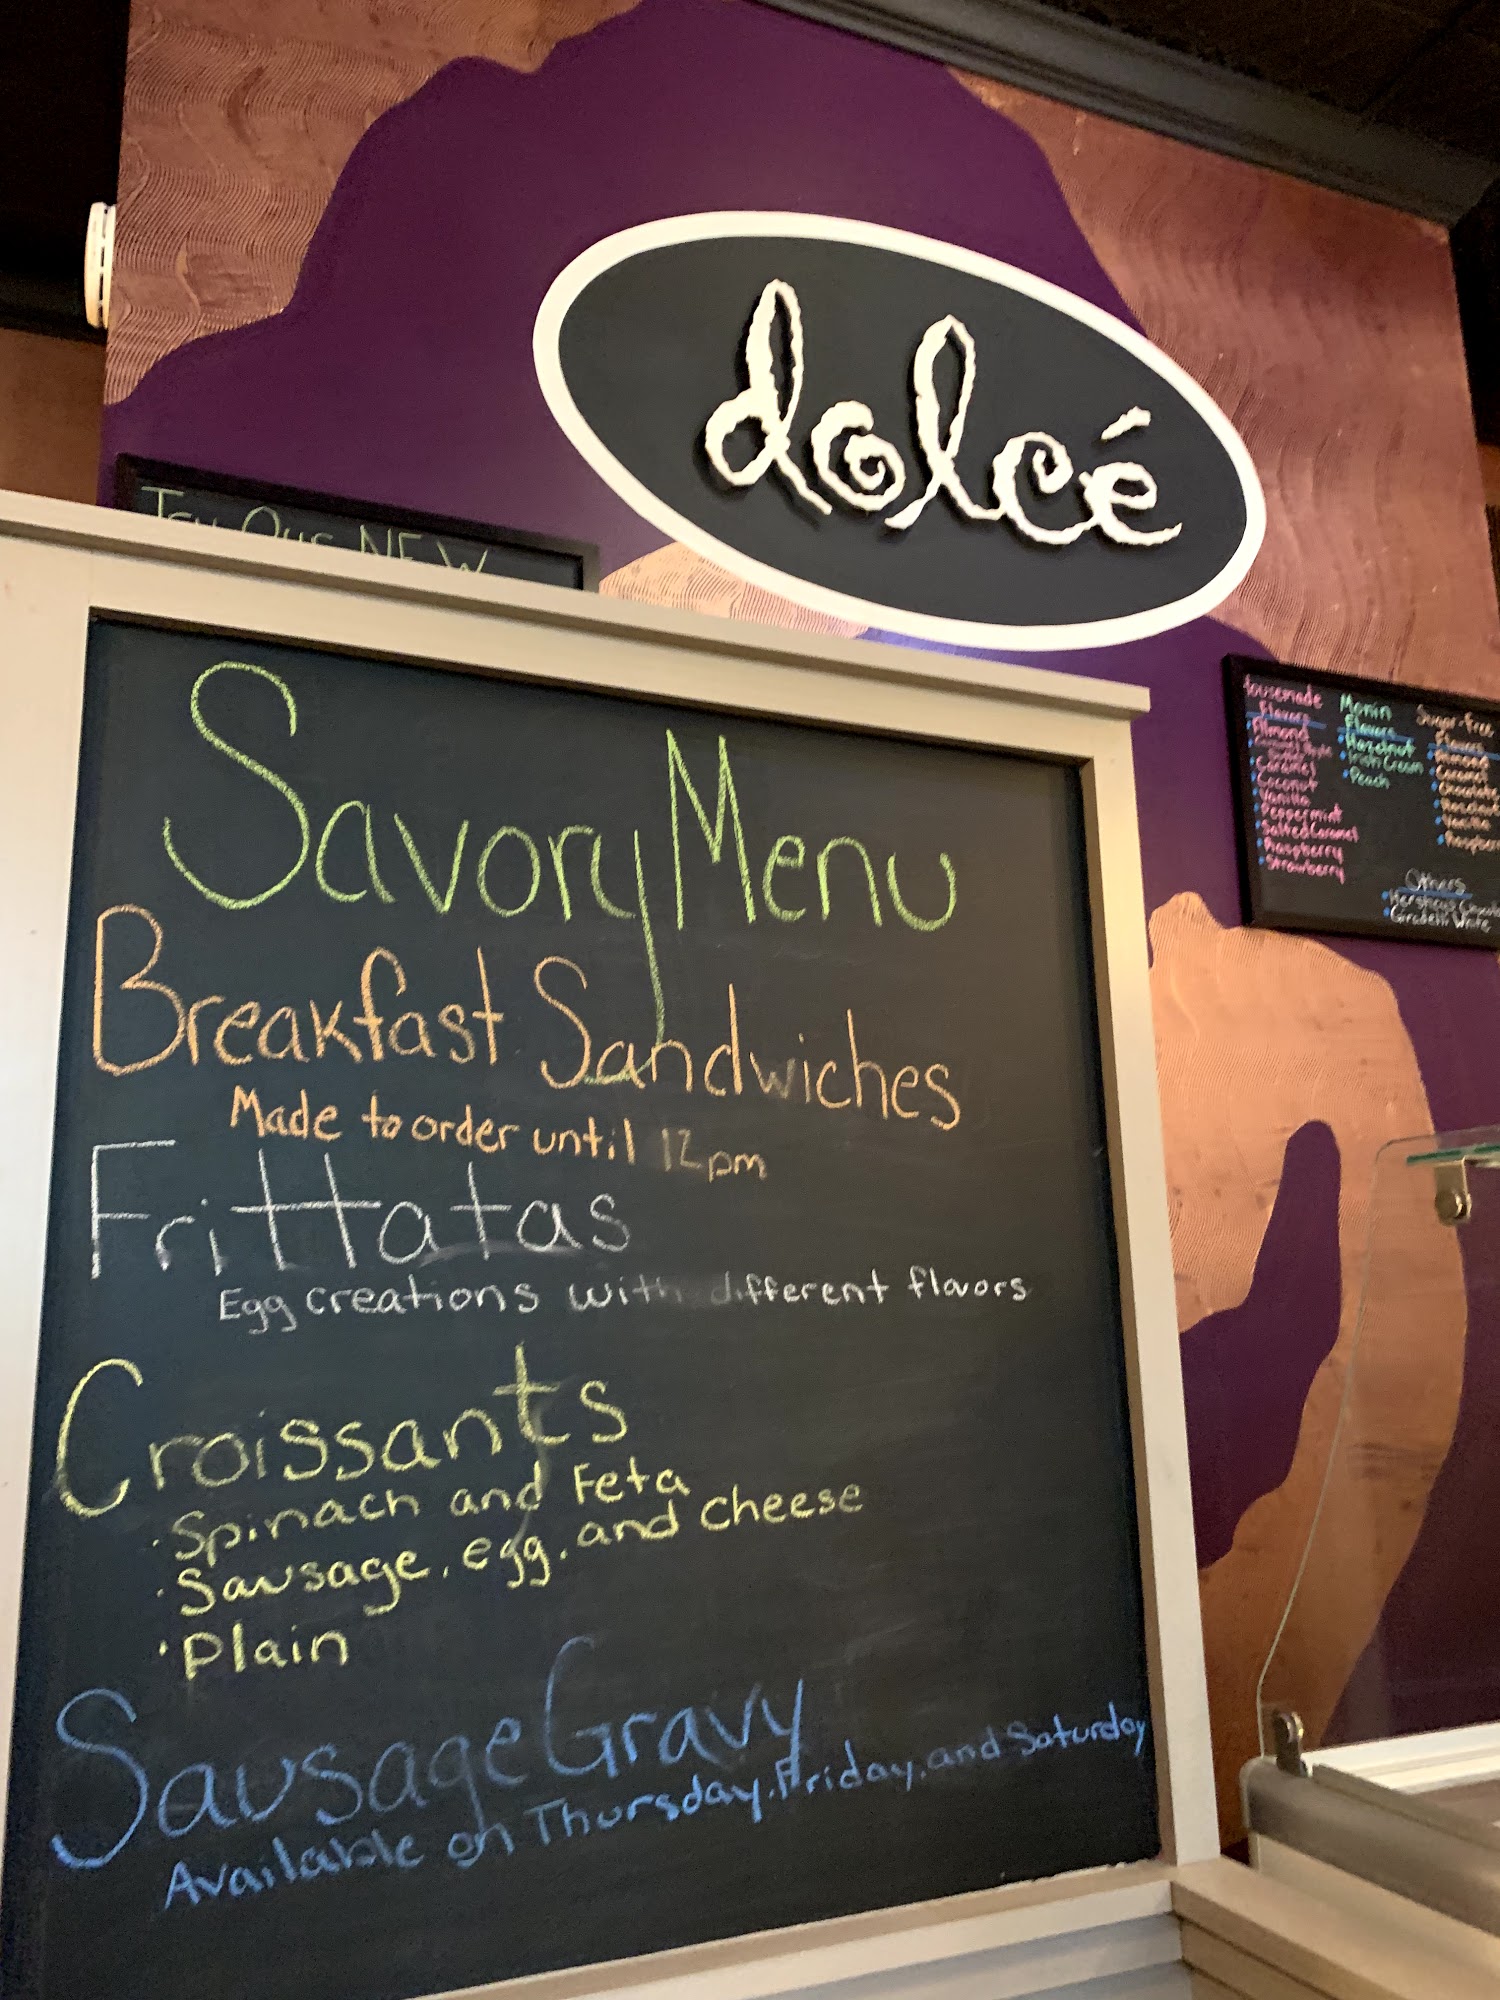 dolcé
Try Our NEW
Savory Menu
Breakfast Sandwiches
Made to order until 12pm
Frittatas
Egg creations with different flavors
Croissants
· Spinach and Feta
· Sausage, egg, and cheese
· Plain
Sausage Gravy
Available on Thursday, Friday, and Saturday
Housemade
Flavors
· Almond
· Caramel
· Coconut
· Vanilla
· Peppermint
· Salted Caramel
· Raspberry
· Strawberry
Monin
Flavors
· Hazelnut
· Irish Cream
· Peach
Sugar-Free
Flavors
· Almond
· Caramel
· Chocolate
· Hazelnut
· Vanilla
· Raspber
Others